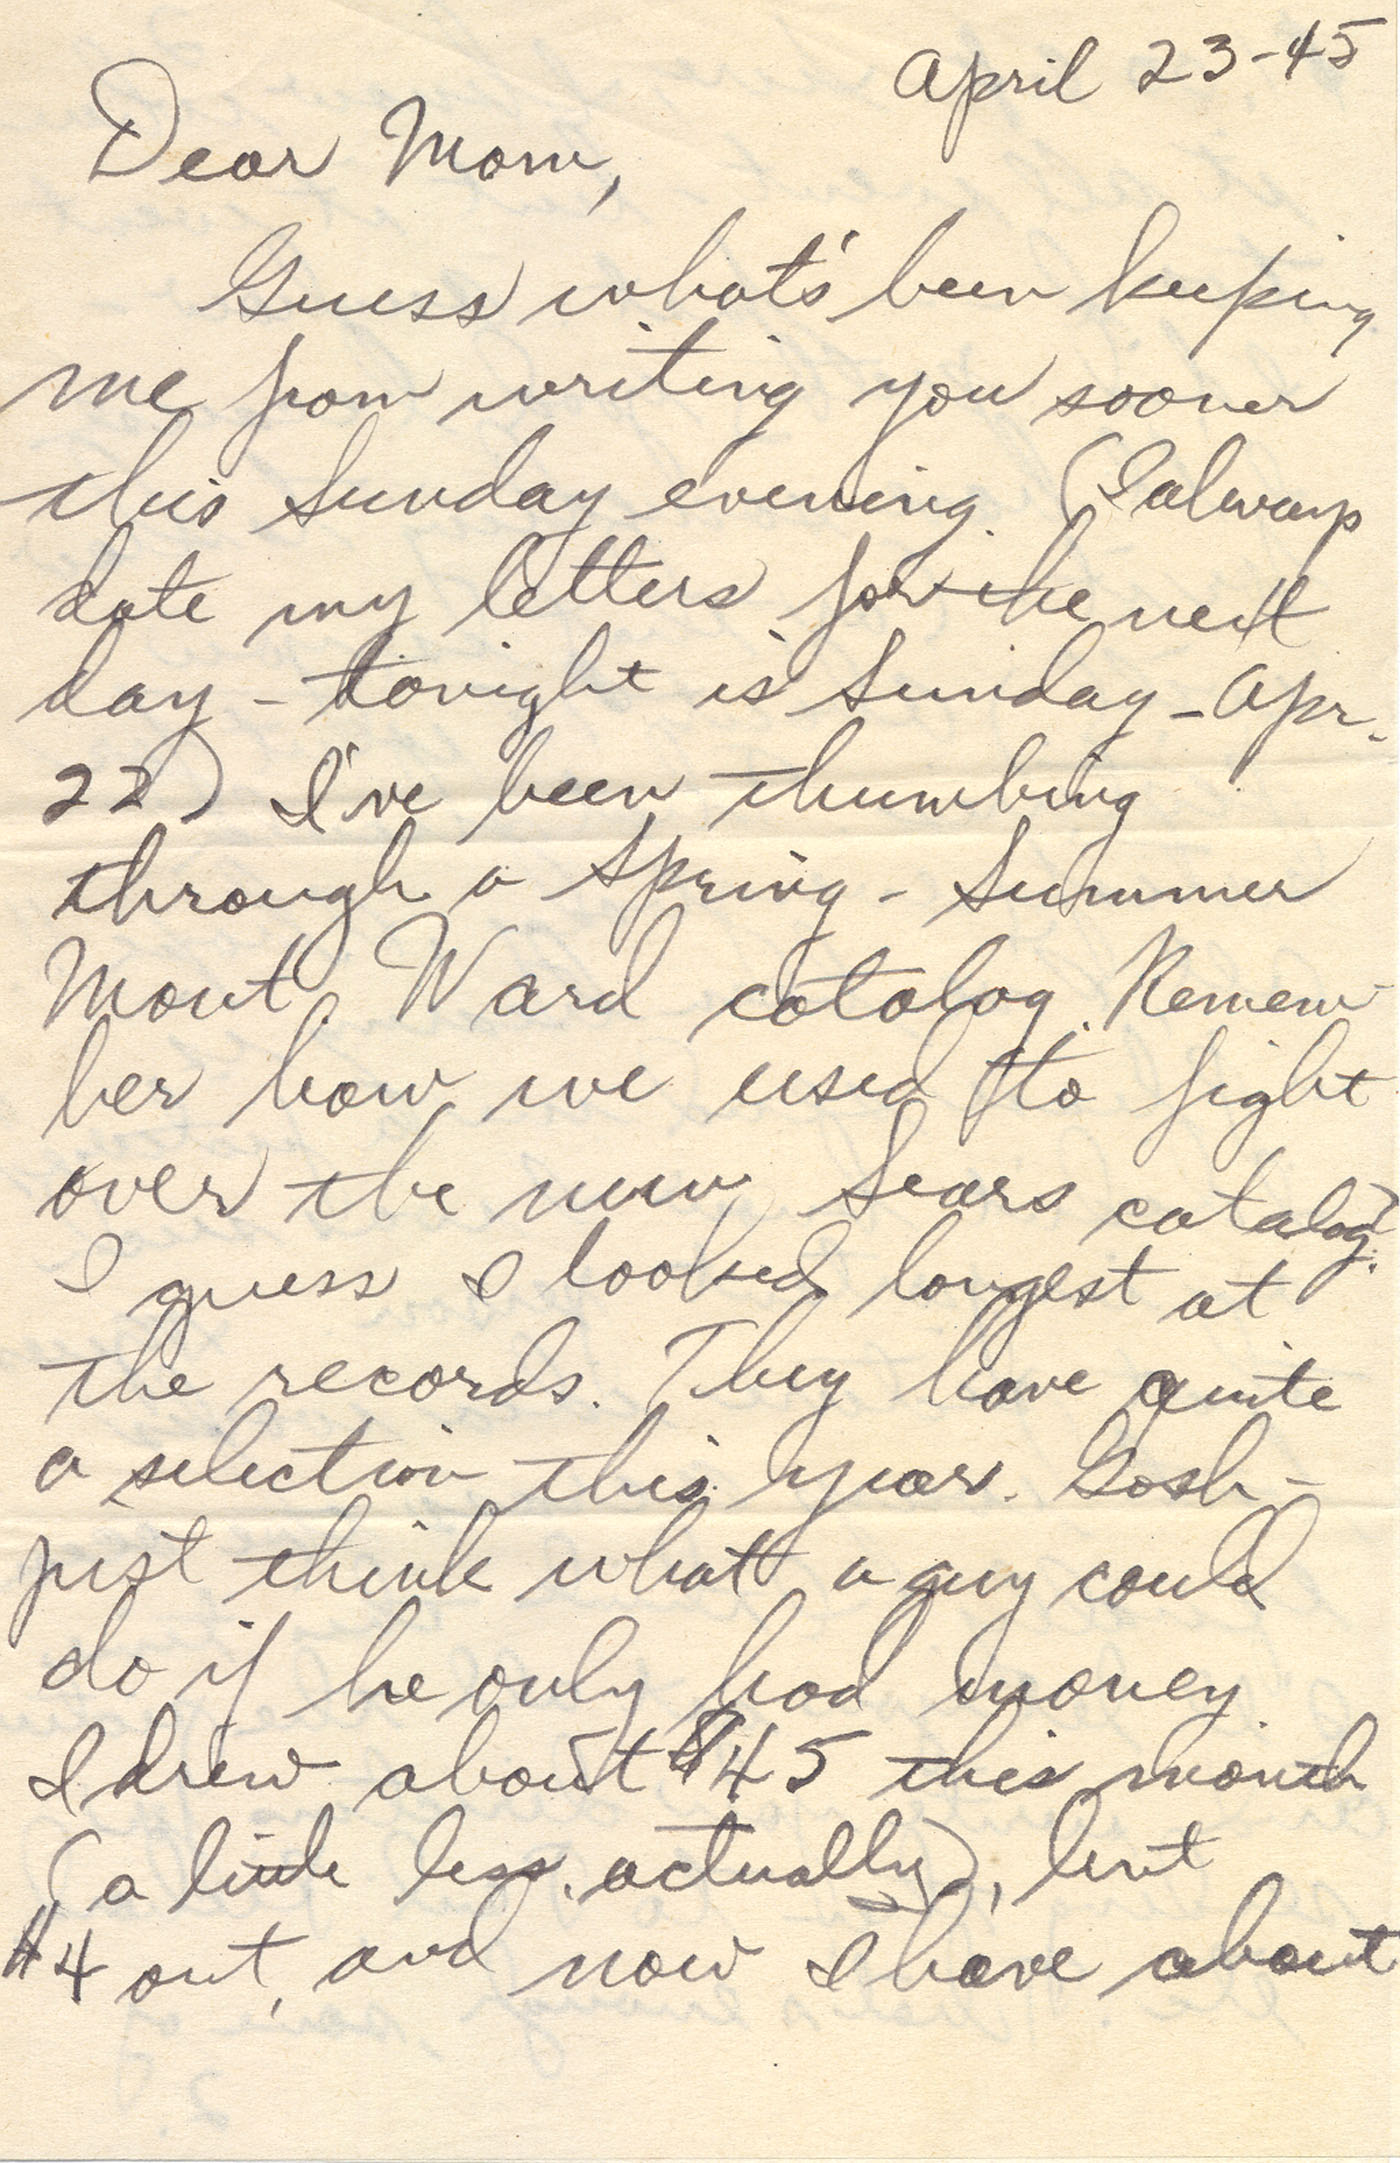 April 23-45
Dear Mom,
Guess what's been keeping
me from writing you sooner
this Sunday evening. (I always
date my letters for the next
day - tonight is Sunday - Apr.
22) I've been thumbing
through a Spring - Summer
Mont. Ward catalog. Remem-
ber how we used to fight
over the new Sears catalog?
I guess I looked longest at
the records. They have quite
a selection this year. Gosh -
just think what a guy could
do if he only had money
I drew about $45 this month
(a little less, actually), lent
$4 out, and now I have about